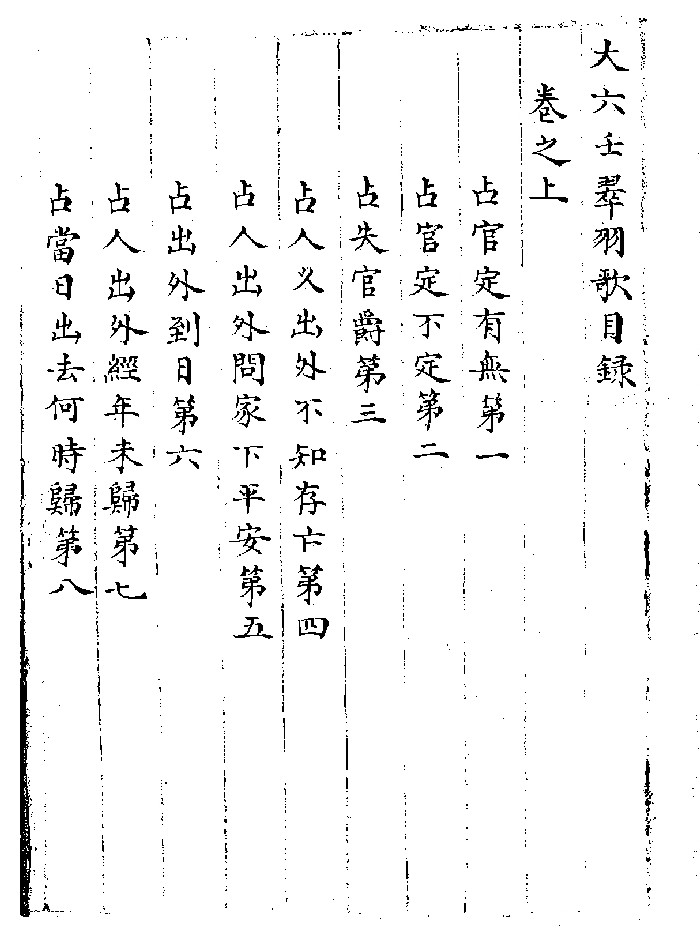 大六壬翠羽歌目録
卷之上
占官定有無第一
占官定不定第二
占失官爵第三
占人乂出外不知存亡第四
占人出外問家下平安第五
占出外到日第六
占人出外經年未歸第七
占當日出去何時歸第八